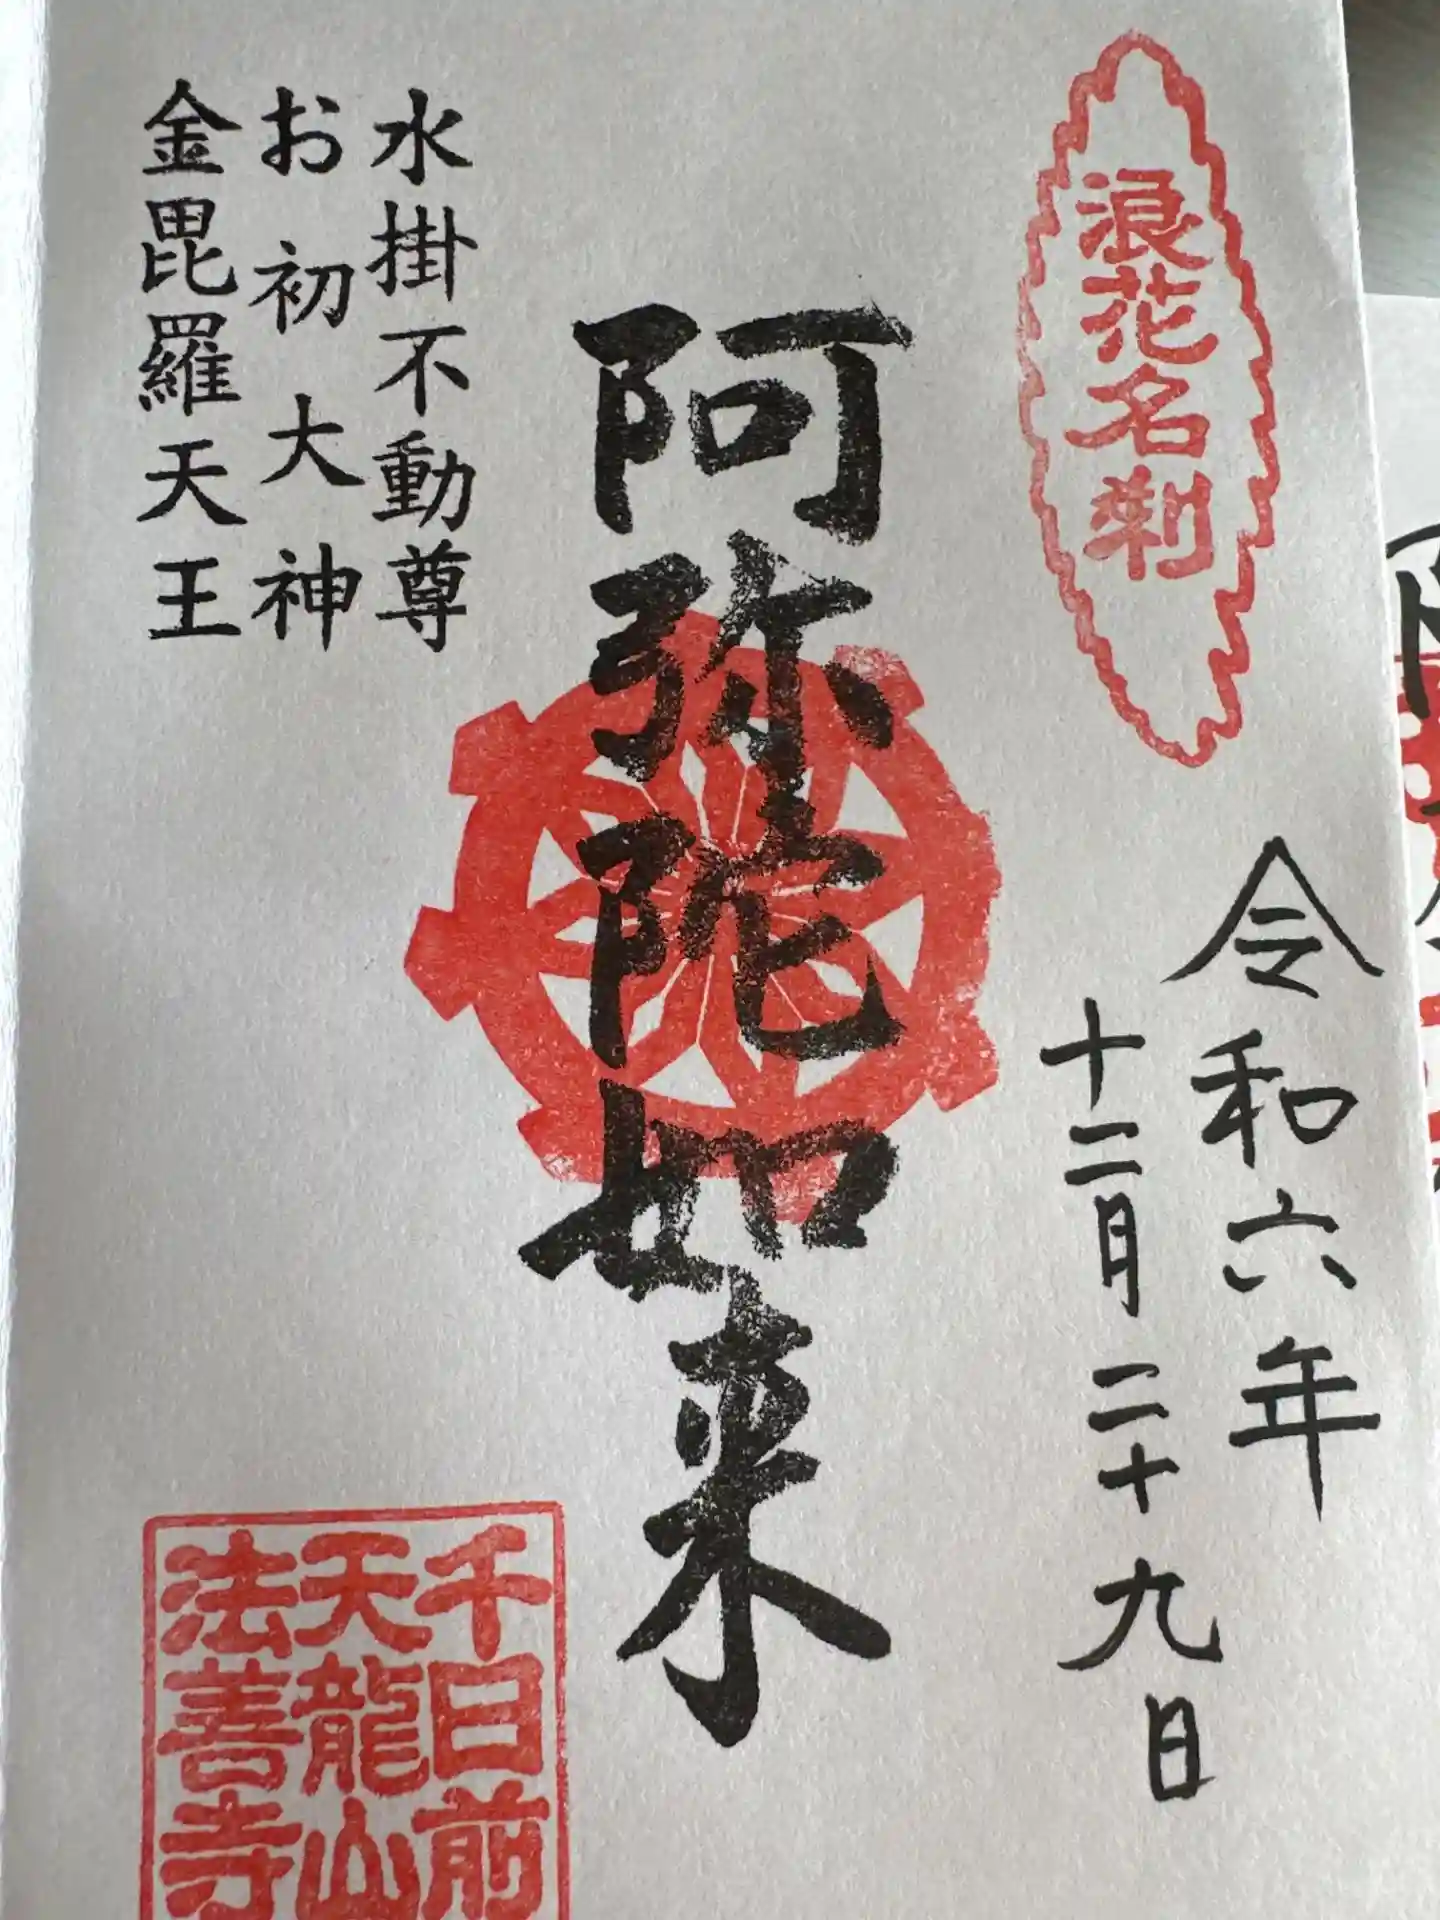 浪花名刹
令和六年
十二月二十九日
阿弥陀如来
水掛不動尊
お初大神
金毘羅天王
千日前
天龍山
法善寺